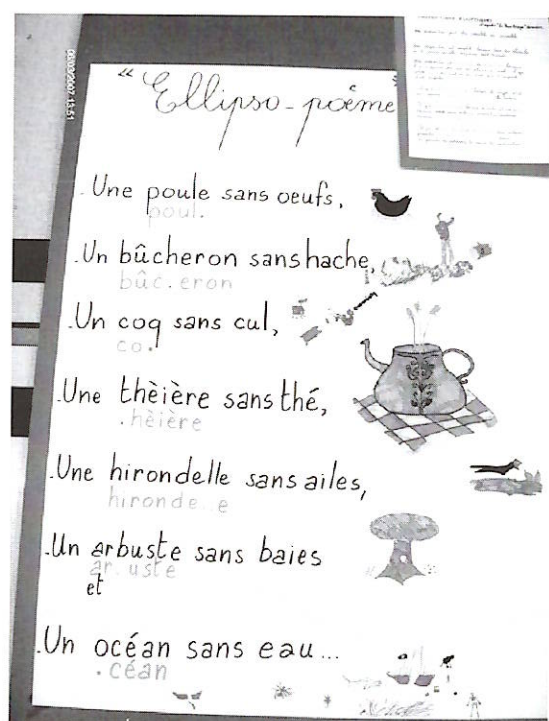 “Ellipso-poème”
.Une poule sans oeufs,
poul.
.Un bûcheron sans hache,
bûc.eron
.Un coq sans cul,
co.
.Une thèière sans thé,
.hèière
.Une hirondelle sans ailes,
hironde..e
.Un arbuste sans baies
ar.uste
et
.Un océan sans eau...
.céan